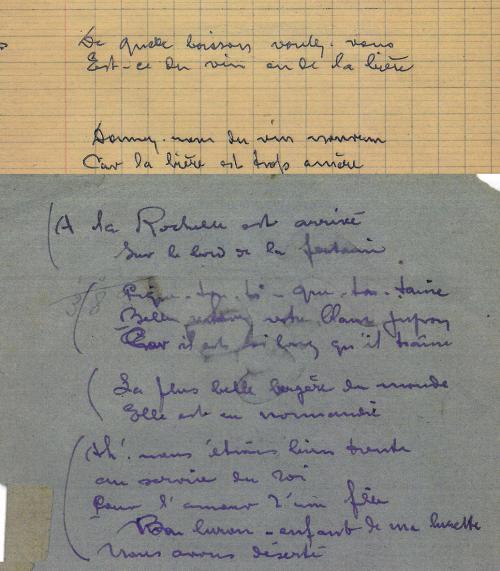 De quelle boisson voulez-vous
Est-ce du vin ou de la bière
Donnez-nous du vin nouveau
Car la bière est trop amère
A la Rochelle est arrivé
Sur le bord de la fontaine
3/8
Pique-ton-ti-que-ton-taine
Belle votre blanc jupon
Car il est si long qu'il traîne
La plus belle bergère du monde
Elle est en Normandie
Ah! nous étions bien trente
au service du roi
Pour l'amour d'une fille
Bon luron-enfant de ma lurette
Nous avons déserté